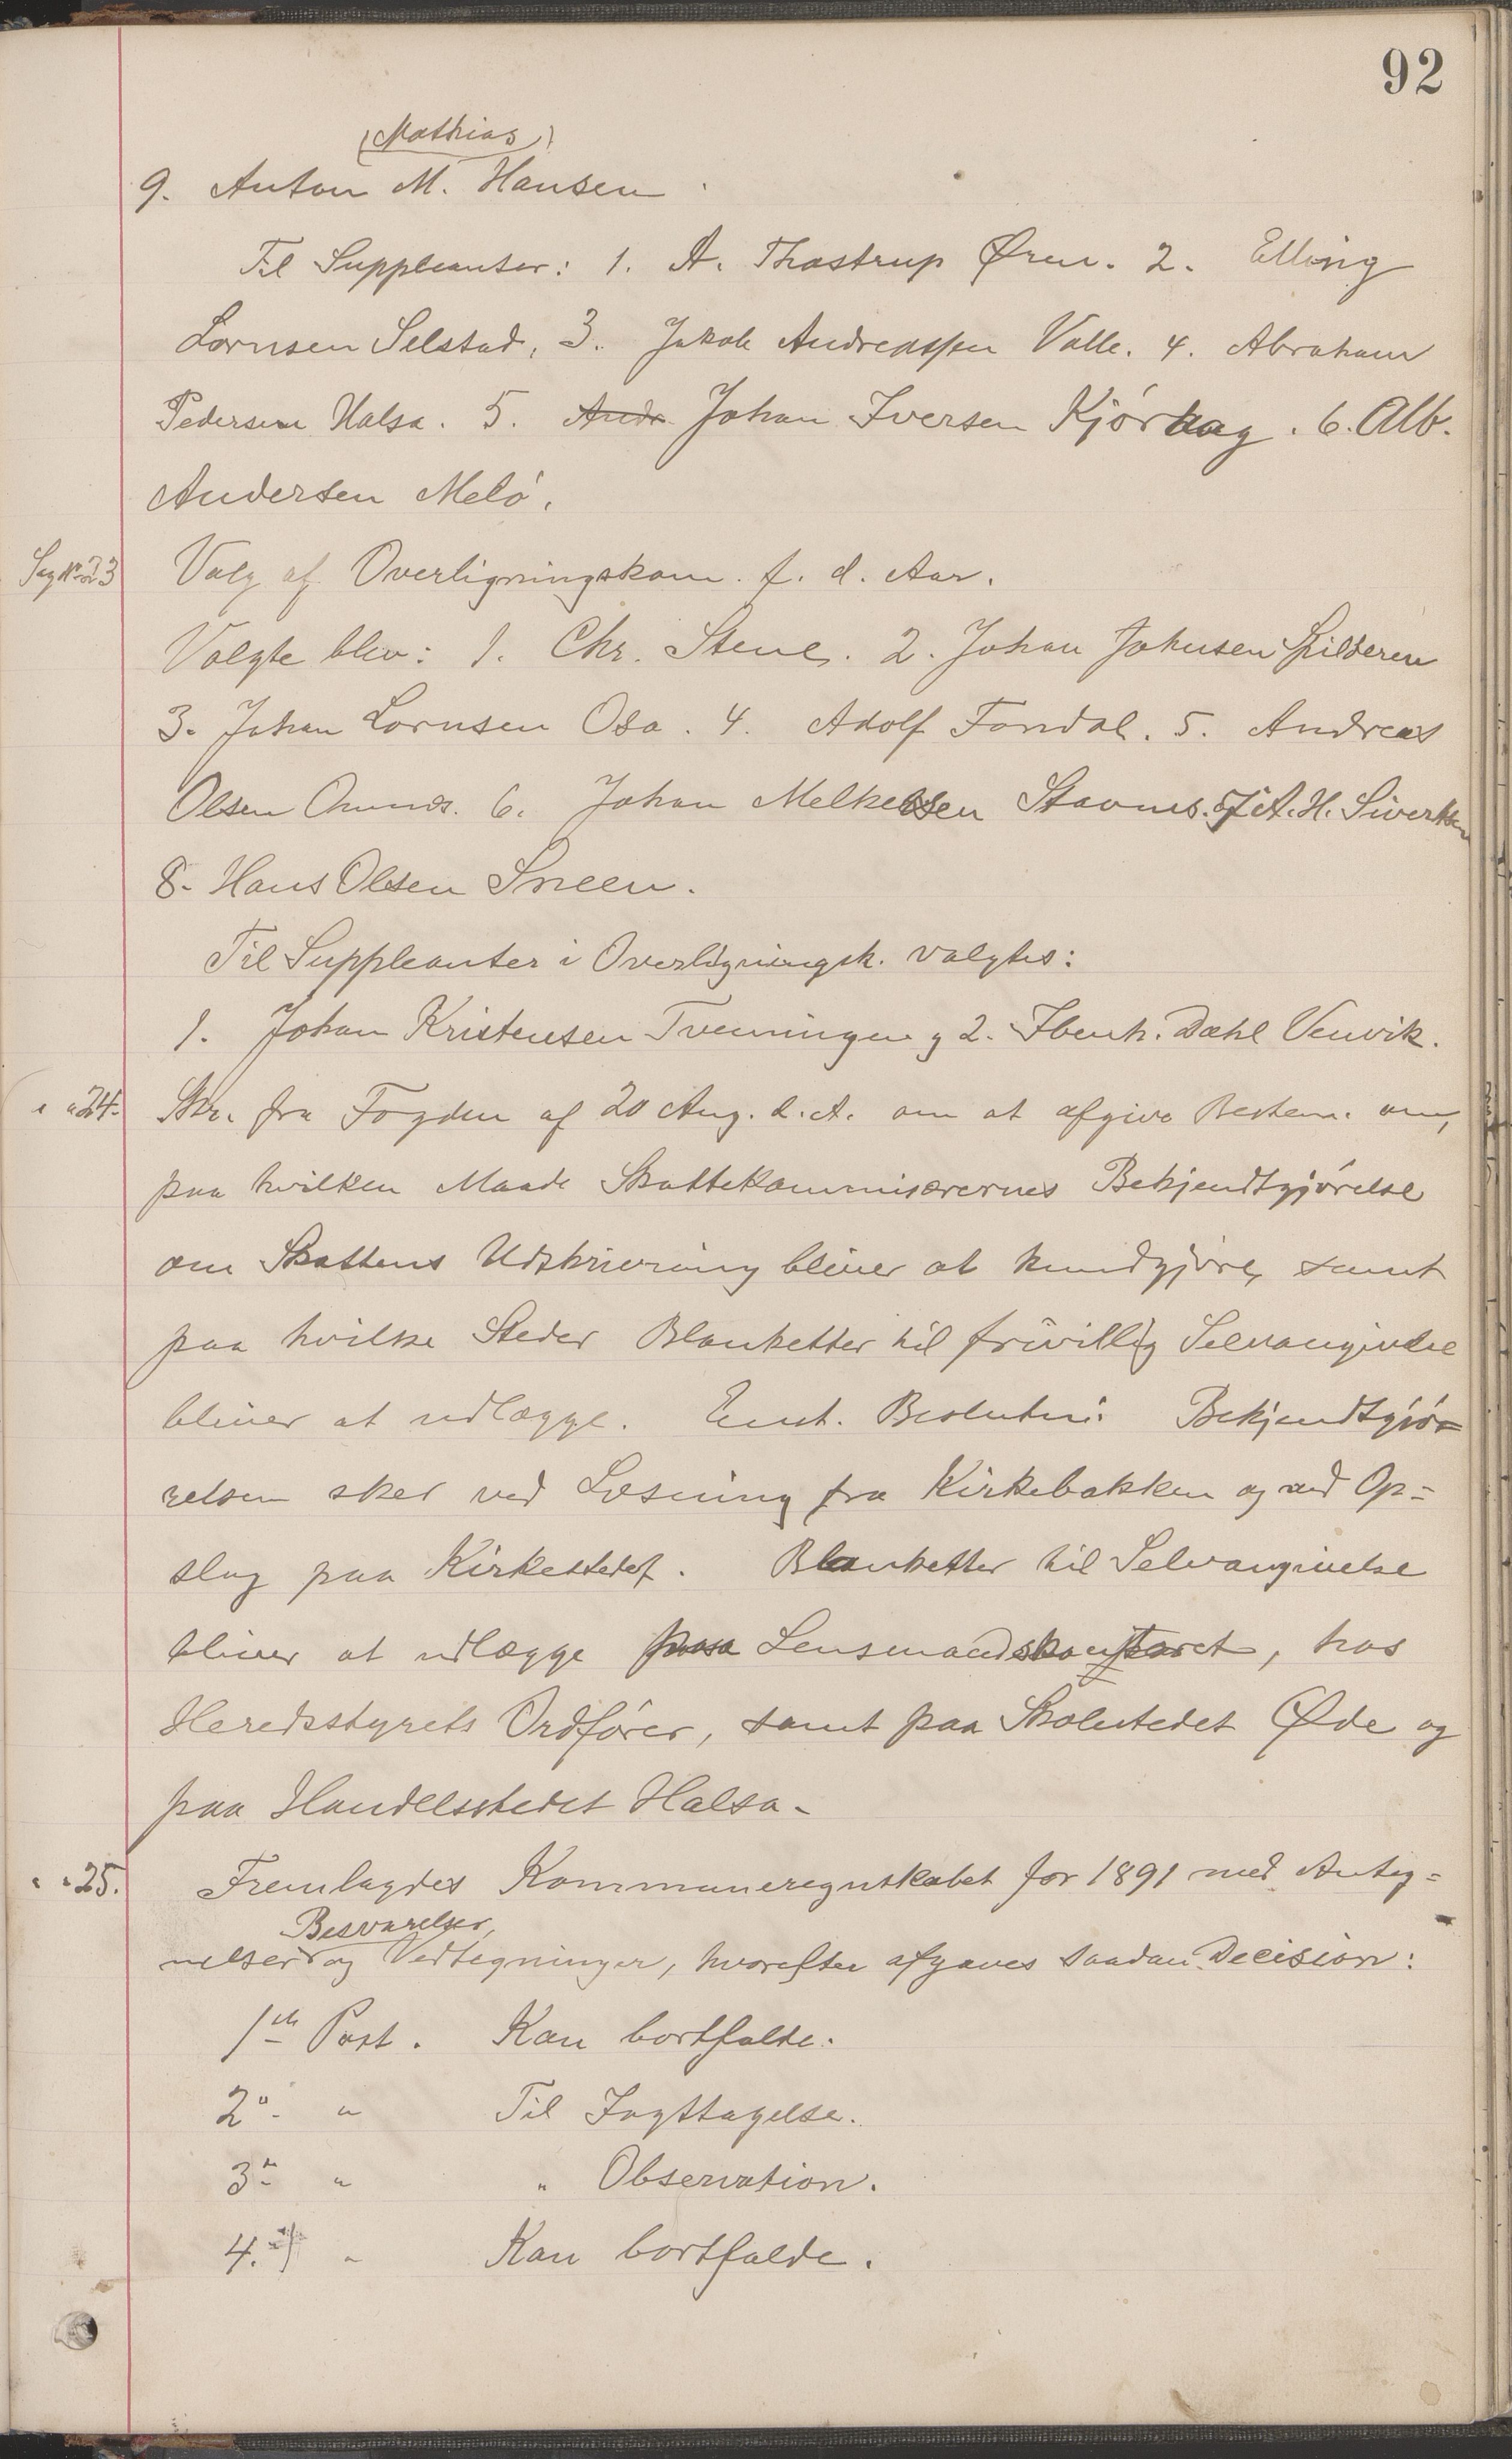 92
(Mathias)
9. Anton M. Hansen.
Til Suppleanter: 1. A. Thostrup Øren. 2. Elling
Lornsen Selstad, 3. Jakob Andreassen Valle. 4. Abraham
Pedersen Halsa. 5. Andr Johan Iversen Kjørhaug. 6. Alb.
Andersen Melø.
Sag No 23 Valg af Overligningskom. f. d. Aar.
Valgte blev: 1. Chr. Stene. 2. Johan Johnsen Spilderen
3. Johan Lornsen Osa. 4. Adolf Fondal. 5. Andreas
Olsen Ornæs. 6. Johan Melkelsen Stavnes. 7 A. H. Sivertsen
8. Hans Olsen Sneen.
Til Suppleanter i Overligningsk. valgtes:
1. Johan Kristensen Tvenningen og 2. Ibenh. Dahl Venvik.
" " 24. Skr. fra Fogden af 20 Aug. d. A. om at afgive Bestem. om,
paa hvilken Maade Skattekommisærernes Bekjendtgjørelse
om Skattens Udskrivning bliver at kundgjøre, samt
paa hvilke Steder Blanketter til frivillig Selvangivelse
bliver at udlægge. Enst. Beslutn: Bekjendtgjø=
relsen sker ved Læsning fra Kirkebakken og ved Op=
slag paa Kirkestedet. Blanketter til Selvangivelse
bliver at udlægge paa Lensmandskontoret, hos
Heredsstyrets Ordfører, samt paa Skolestedet Øde og
paa Handelsstedet Halsa.
" " 25. Fremlagdes Kommuneregnskabet for 1891 med Anteg=
Besvarelser,
nelser og Vedtegninger, hvorefter afgaves saadan Decision:
1ste Post. Kan bortfalde.
2" " Til Iagttagelse.
3" " " Observation.
4. " Kan bortfalde.